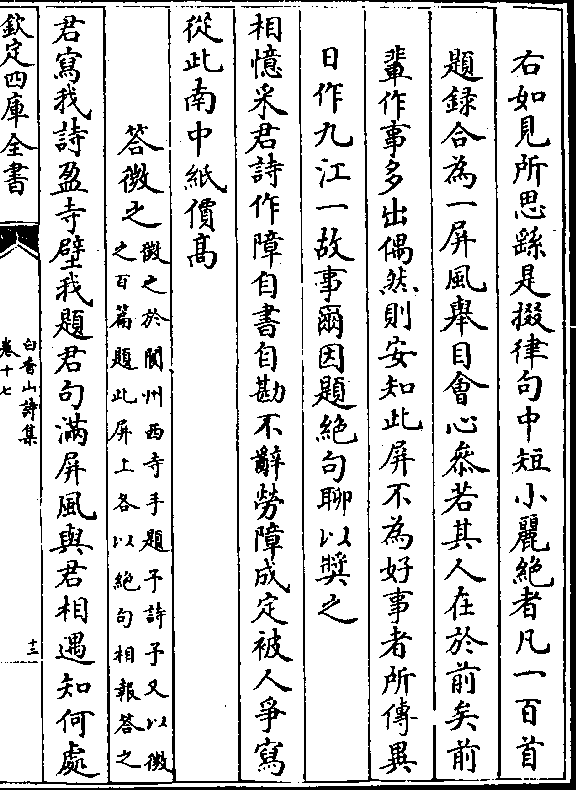 右如見所思繇是掇律句中短小麗絶者凡一百首
題録合為一屏風舉目會心叅若其人在於前矣前
輩作事多出偶然則安知此屏不為好事者所傳異
日作九江一故事爾因題絶句聊以奬之
相憶采君詩作障自書自勘不辭勞障成定被人爭寫
從此南中紙價髙
答微之
微之於閬州西寺手題予詩予又以微
之百篇題此屏上各以絶句相報答之
君寫我詩盈寺壁我題君句滿屏風與君相遇知何處
欽定四庫全書
白香山詩集
卷十七
十三